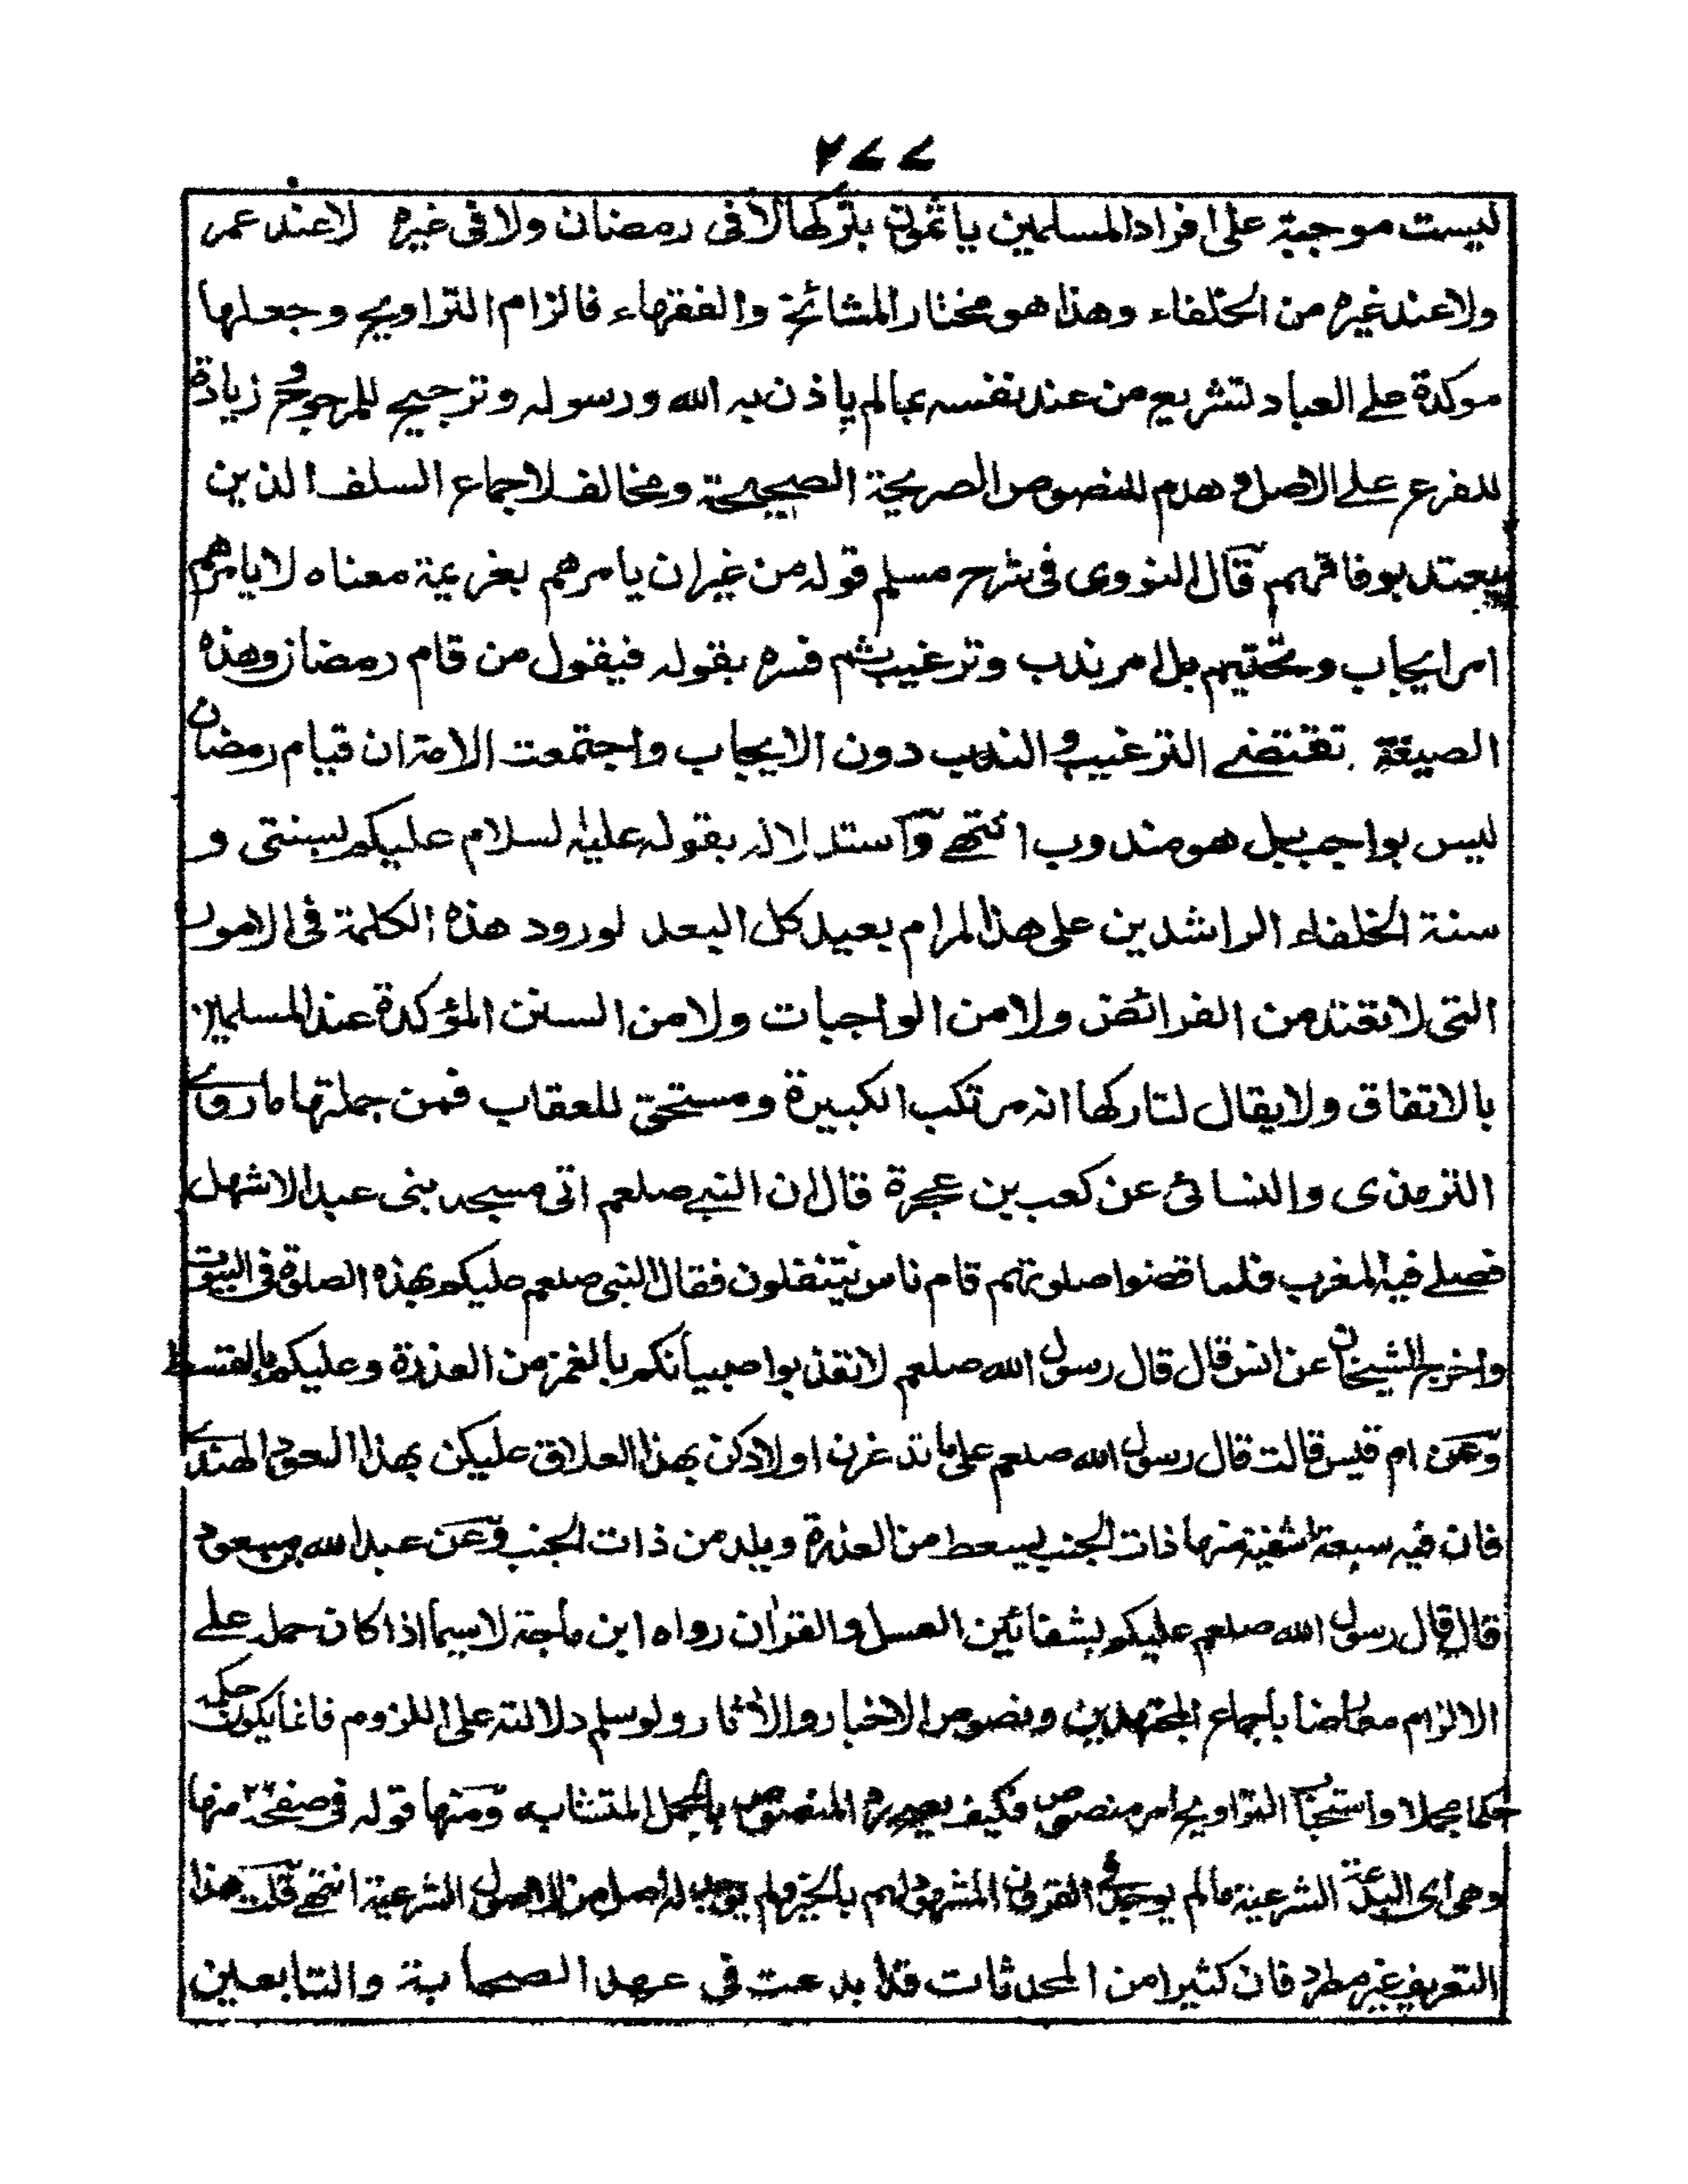 ٢٧٧
ليست موجبة على افراد المسلمين ياثمون بتركها لا فى رمضان ولا فى غيره لا عند عمر
ولا عند غيره من الخلفاء وهذا هو مختار المشائخ والفقهاء فالزام التراويح وجعلها
موكدة على العباد لتشريع من عند نفسه بما لم ياذن به الله ورسوله وترجيح للمرجوح وزيادة
للفرع على الاصل وهدم للنصوص الصريحة الصحيحة ومخالف لاجماع السلف الذين
يعتد بوفاقهم قال النووى فى شرح مسلم قوله من غيران يامرهم بعزيمة معناه لا يامرهم
امر ايجاب وتحتيم بل امر ندب وترغيب ثم فسره بقوله فيقول من قام رمضان وهذه
الصيغة تقتضے الترغيب والندب دون الايجاب واجتمعت الامة ان قيام رمضان
ليس بواجب بل هو مندوب انتهے واستدلاله بقوله عليه السلام عليكم بسنتى و
سنة الخلفاء الراشدين على هذا المرام بعيد كل البعد لورود هذه الكلمة فى الامور
التى لا تعتد من الفرائض ولا من الواجبات ولا من السنن المؤكدة عند المسلمين
بالاتفاق ولا يقال لتاركها انه مرتكب الكبيرة ومستحق للعقاب فمن جملتها ما رواے
الترمذى والنسائى عن كعب بن عجرة قال ان النبے صلعم اتى مسجد بنى عبد الاشهل
فصلے فيه المغرب فلما قضوا صلوتهم قام ناس يتنفلون فقال النبى صلعم عليكم بهذه الصلوة فى البيوت
واخرج الشيخان عن انس قال قال رسول الله صلعم لا تعذبوا صبيانكم بالغمز من العذرة وعليكم بالقسط
وعن ام قيس قالت قال رسول الله صلعم على ما تدغرن اولادكن بهذا العلاق عليكن بهذا العود الهندے
فان فيه سبعة اشفية منها ذات الجنب يسعط من العذرة ويلد من ذات الجنب وعن عبد الله بن مسعود
قال قال رسول الله صلعم عليكم بشفائين العسل والقران رواه ابن ماجة لاسيما اذا كان حمله علے
الالزام معارضا باجماع المجتهدين ونصوص الاخبار والاثار ولو سلم دلالته على اللزوم فانما يكون حكمه
حكما مجملا واستحباب التراويح امر منصوص فكيف المنصوص بالمجمل المتشابه ومنها قوله فى صفحة منها
وهى اى البدعة الشرعية مالم يوجد فى القرون المشهود لهم بالخير ولم يوجد له اصل من الاصول الشرعية انتهے قلت هذا
التعريف غير مطرد فان كثيرا من المحدثات قد ابدعت فى عهد الصحابة والتابعين